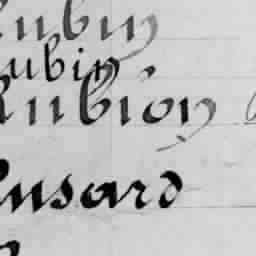 ubin
ubin
ubion
usard